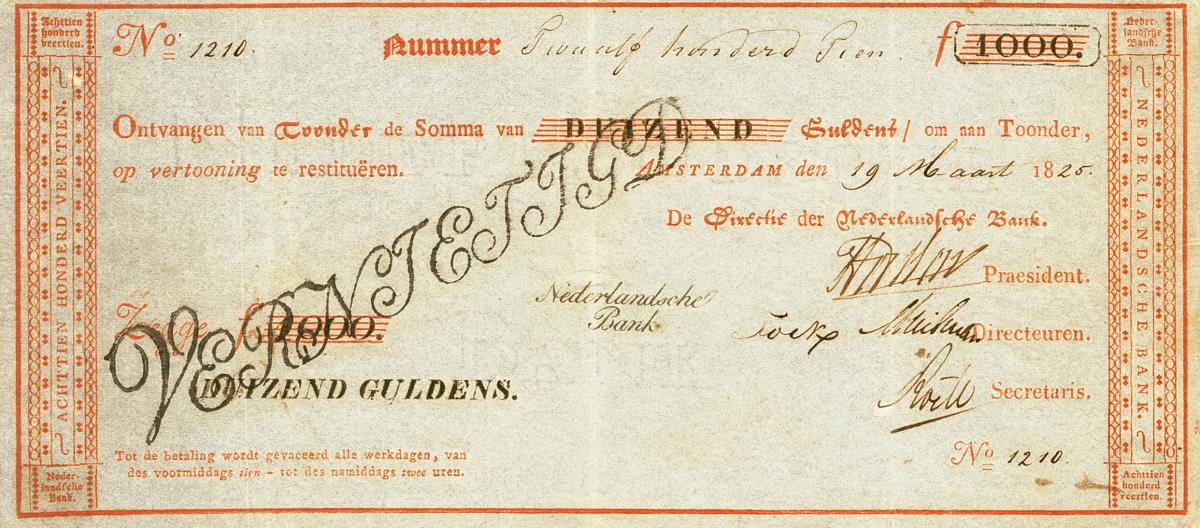 Achttien
honderd
veertien.
Neder-
landsche
Bank.
No 1210.
Nummer Twaalf honderd Tien.
f 1000.
Ontvangen van Toonder de Somma van DUIZEND Guldens / om aan Toonder,
op vertooning te restituëren.
AMSTERDAM den 19 Maart 1825.
De Directie der Nederlandsche Bank.
VERNIETIGD
Praesident.
Nederlandsche
Bank
Directeuren.
Zegge f 1000.
DUIZEND GULDENS.
Secretaris.
Tot de betaling wordt gevaceerd alle werkdagen, van
des voormiddags tien - tot des namiddags twee uren.
No 1210.
ACHTTIEN HONDERD VEERTIEN.
NEDERLANDSCHE BANK.
Neder-
landsche
Bank.
Achttien
honderd
veertien.